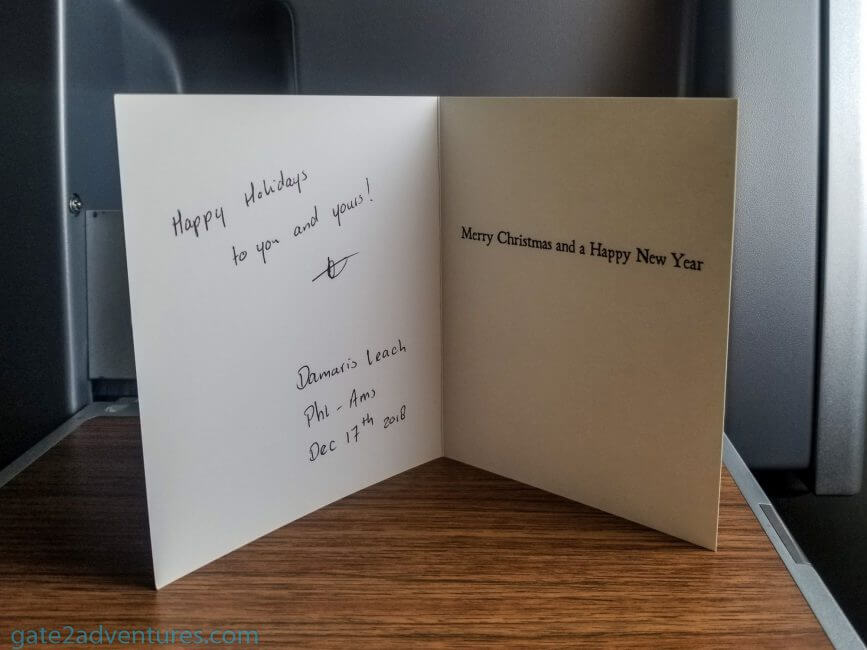 Happy Holidays
to you and yours!
Damaris Leach
PHL - AMS
Dec 17th 2018
Merry Christmas and a Happy New Year
gate2adventures.com